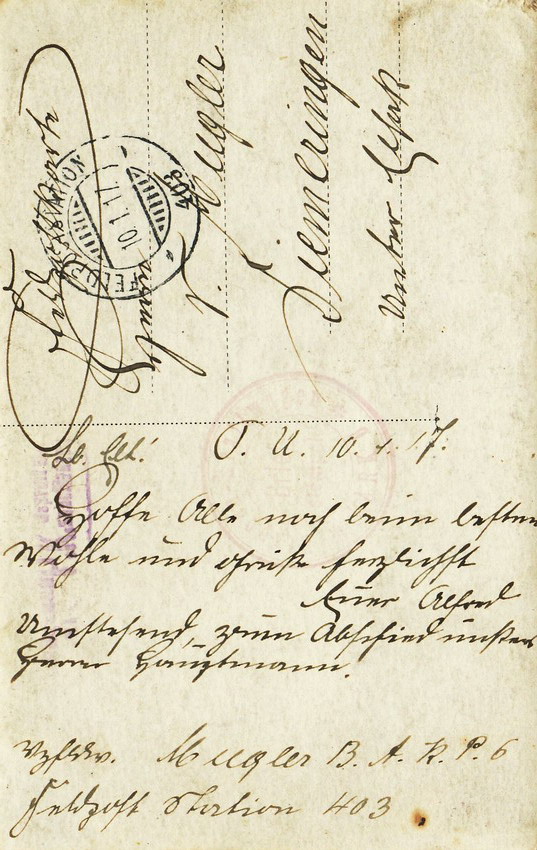 Feldpostkarte
Familie
J. Mugler
Diemeringen
Unter Elsaß
FELDPOSTSTATION
10.1.17
403
Lb. Elt! O. U. 10.1.17.
Hoffe Alle noch beim besten
Wohle und grüße herzlichst
Euer Alfred
Umstehend, zum Abschied unsers
Herrn Hauptmann.
Vzfldw. Mugler B. A. K. P. 6
Feldpost Station 403